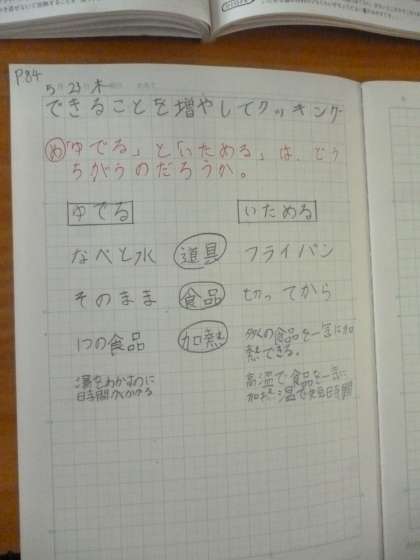 P84
5月23日木
できることを増やしてクッキング
め「ゆでる」と「いためる」は、どう
ちがうのだろうか。
ゆでる いためる
なべと水 道具 フライパン
そのまま 食品 切ってから
1つの食品 加熱 多くの食品を一気に加
熱できる。
湯をわかすのに
時間がかかる
高温で食品を一気に
加熱 温で短時間